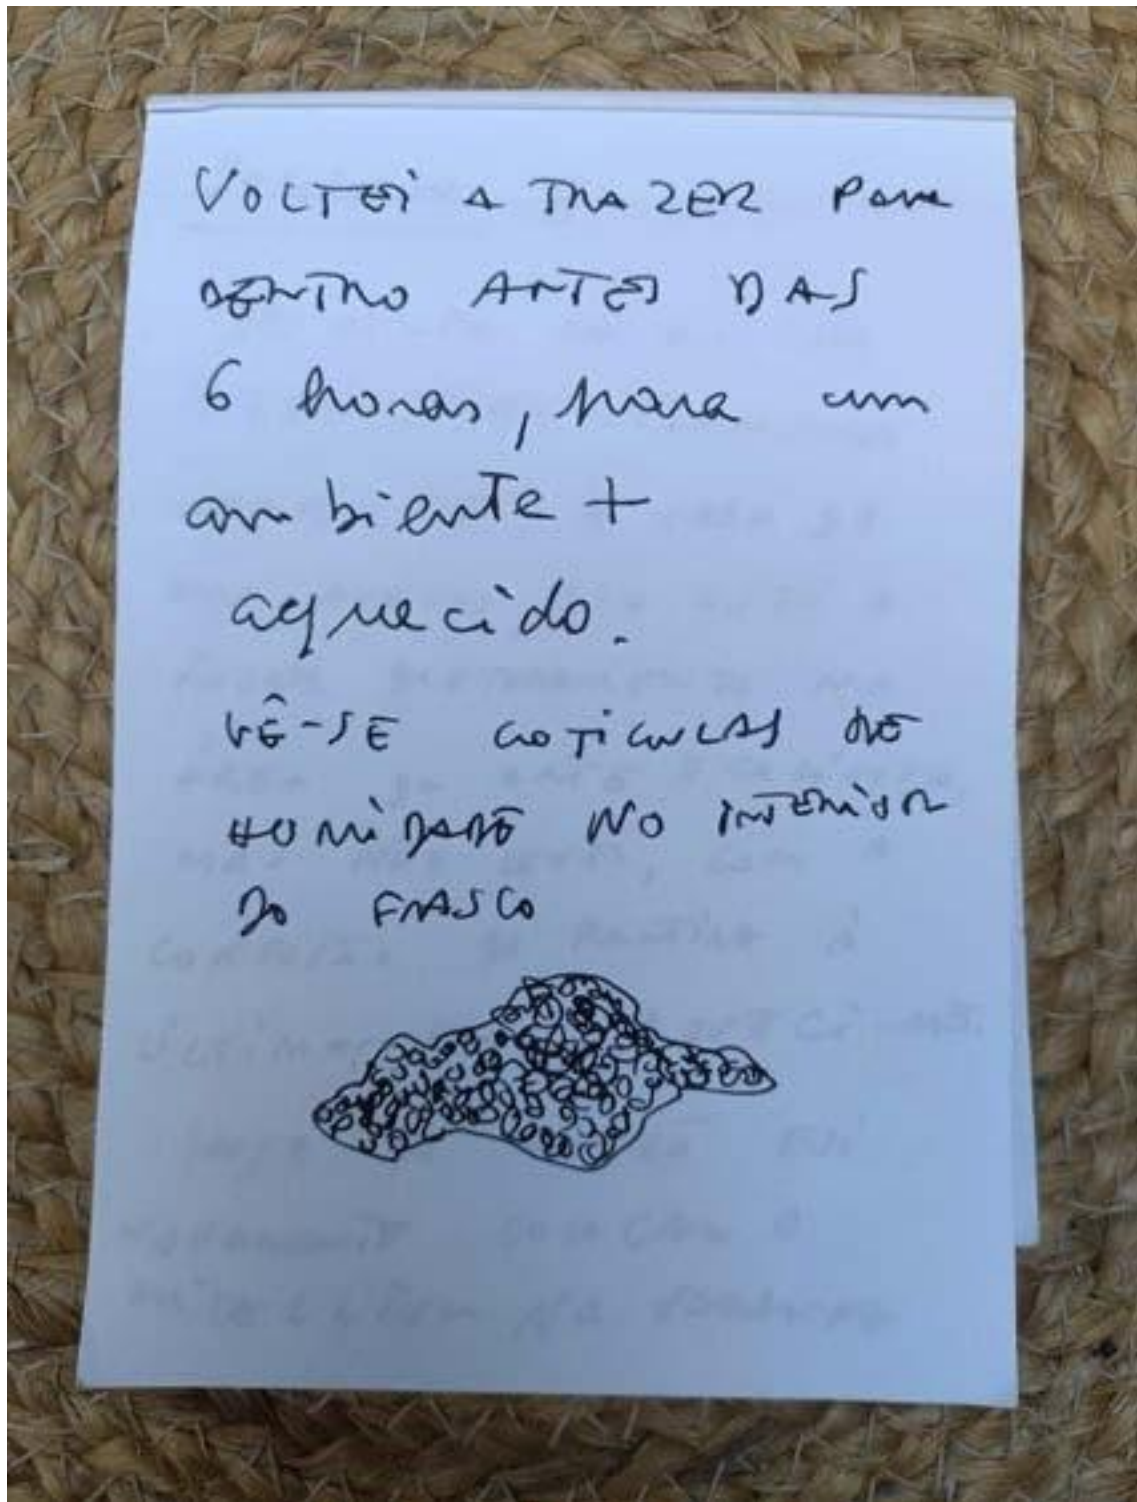 VOLTEI A TRAZER para
DENTRO ANTES DAS
6 horas, para um
ambiente +
aquecido.
VÊ-SE GOTICULAS DE
HUMIDADE NO INTERIOR
DO FRASCO